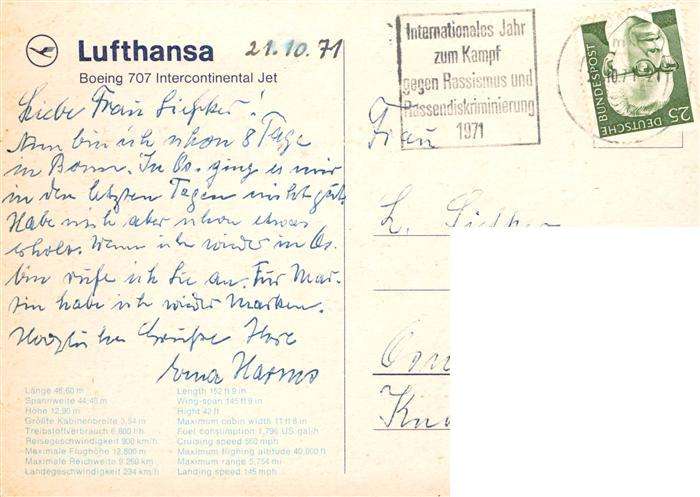 Lufthansa 21.10.71
Boeing 707 Intercontinental Jet
Liebe Frau Siefker!
Nun bin ich schon 8 Tage
in Bonn. In Os. ging es mir
in den letzten Tagen nicht gut.
Habe mich aber schon etwas
erholt. Wenn ich wieder in Os.
bin rufe ich Sie an. Für Mar-
tin habe ich wieder Marken.
Herzliche Grüße Ihre
Erna Harms
Länge 46,60 m
Spannweite 44,40 m
Höhe 12,90 m
Größte Kabinenbreite 3,54 m
Treibstoffverbrauch 6,800 l/h
Reisegeschwindigkeit 900 km/h
Maximale Flughöhe 12,800 m
Maximale Reichweite 9 260 km
Landegeschwindigkeit 234 km/h
Length 152 ft 9 in
Wing-span 145 ft 9 in
Hight 42 ft
Maximum cabin width 11 ft 8 in
Fuel consumption 1,796 US gal/h
Cruising speed 560 mph
Maximum flighing altitude 40,000 ft
Maximum range 5,754 mi
Landing speed 145 mph
Internationales Jahr
zum Kampf
gegen Rassismus und
Rassendiskriminierung
1971
25 DEUTSCHE
BUNDESPOST
Frau
L. Siefker